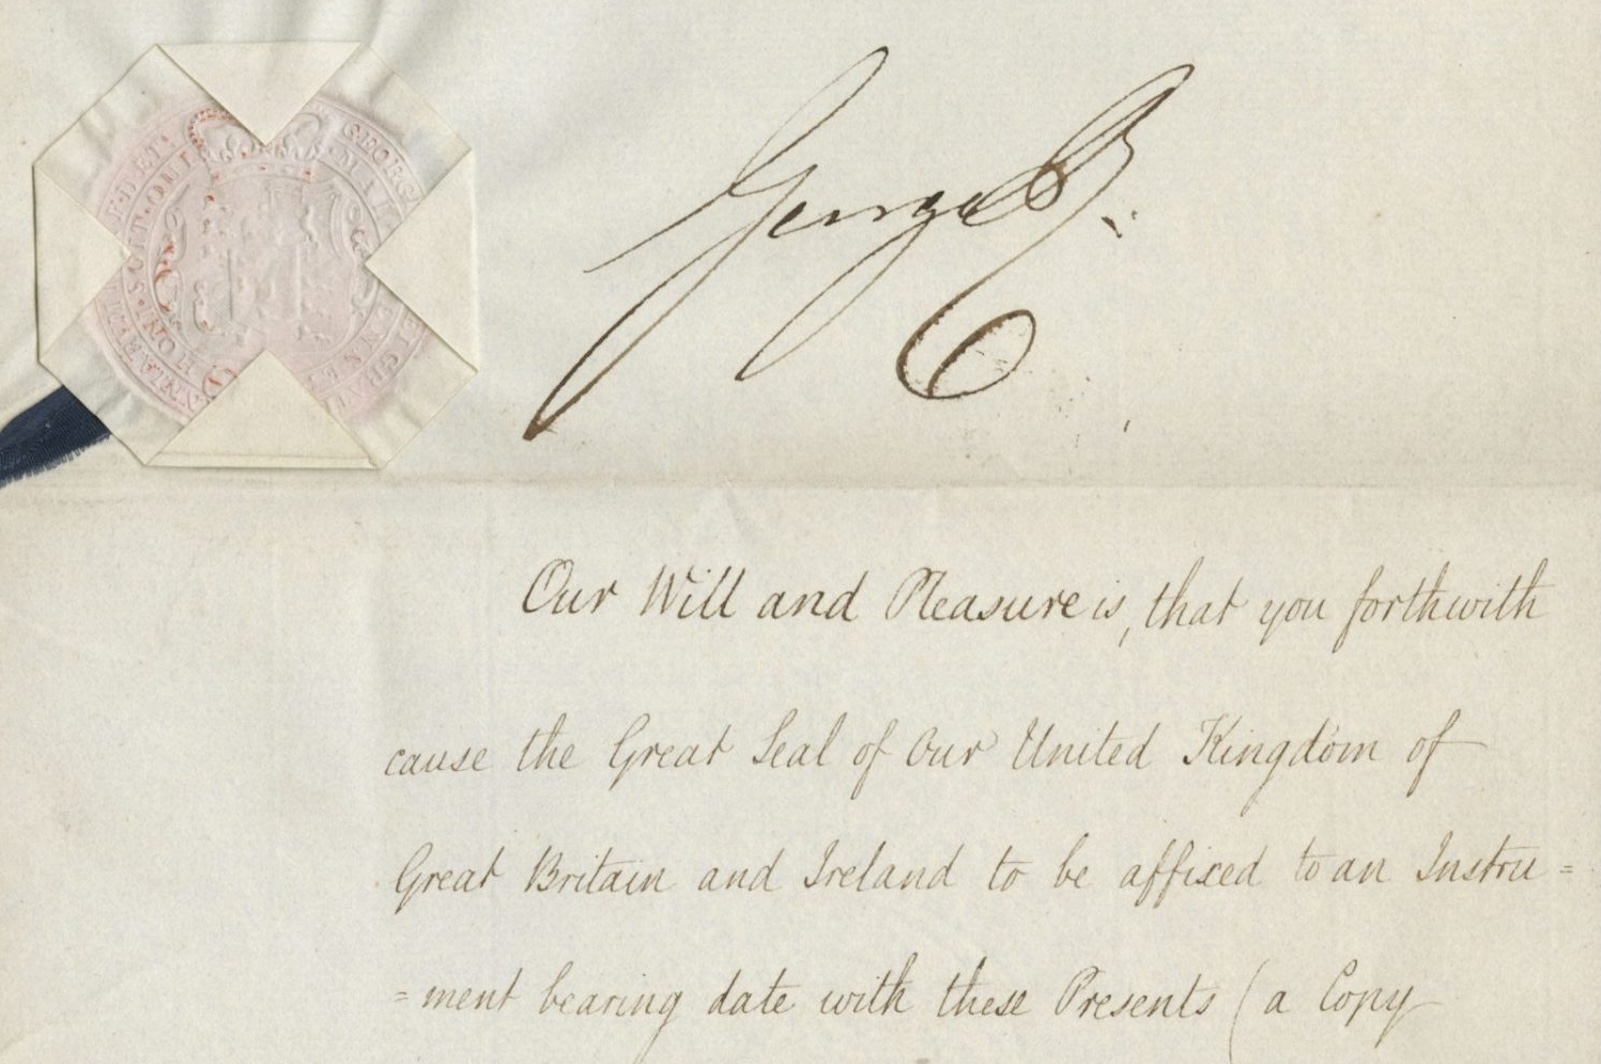 George R.
Our Will and Pleasure is, that you forthwith
cause the Great Seal of Our United Kingdom of
Great Britain and Ireland to be affixed to an Instru=
=ment bearing date with these Presents (a Copy